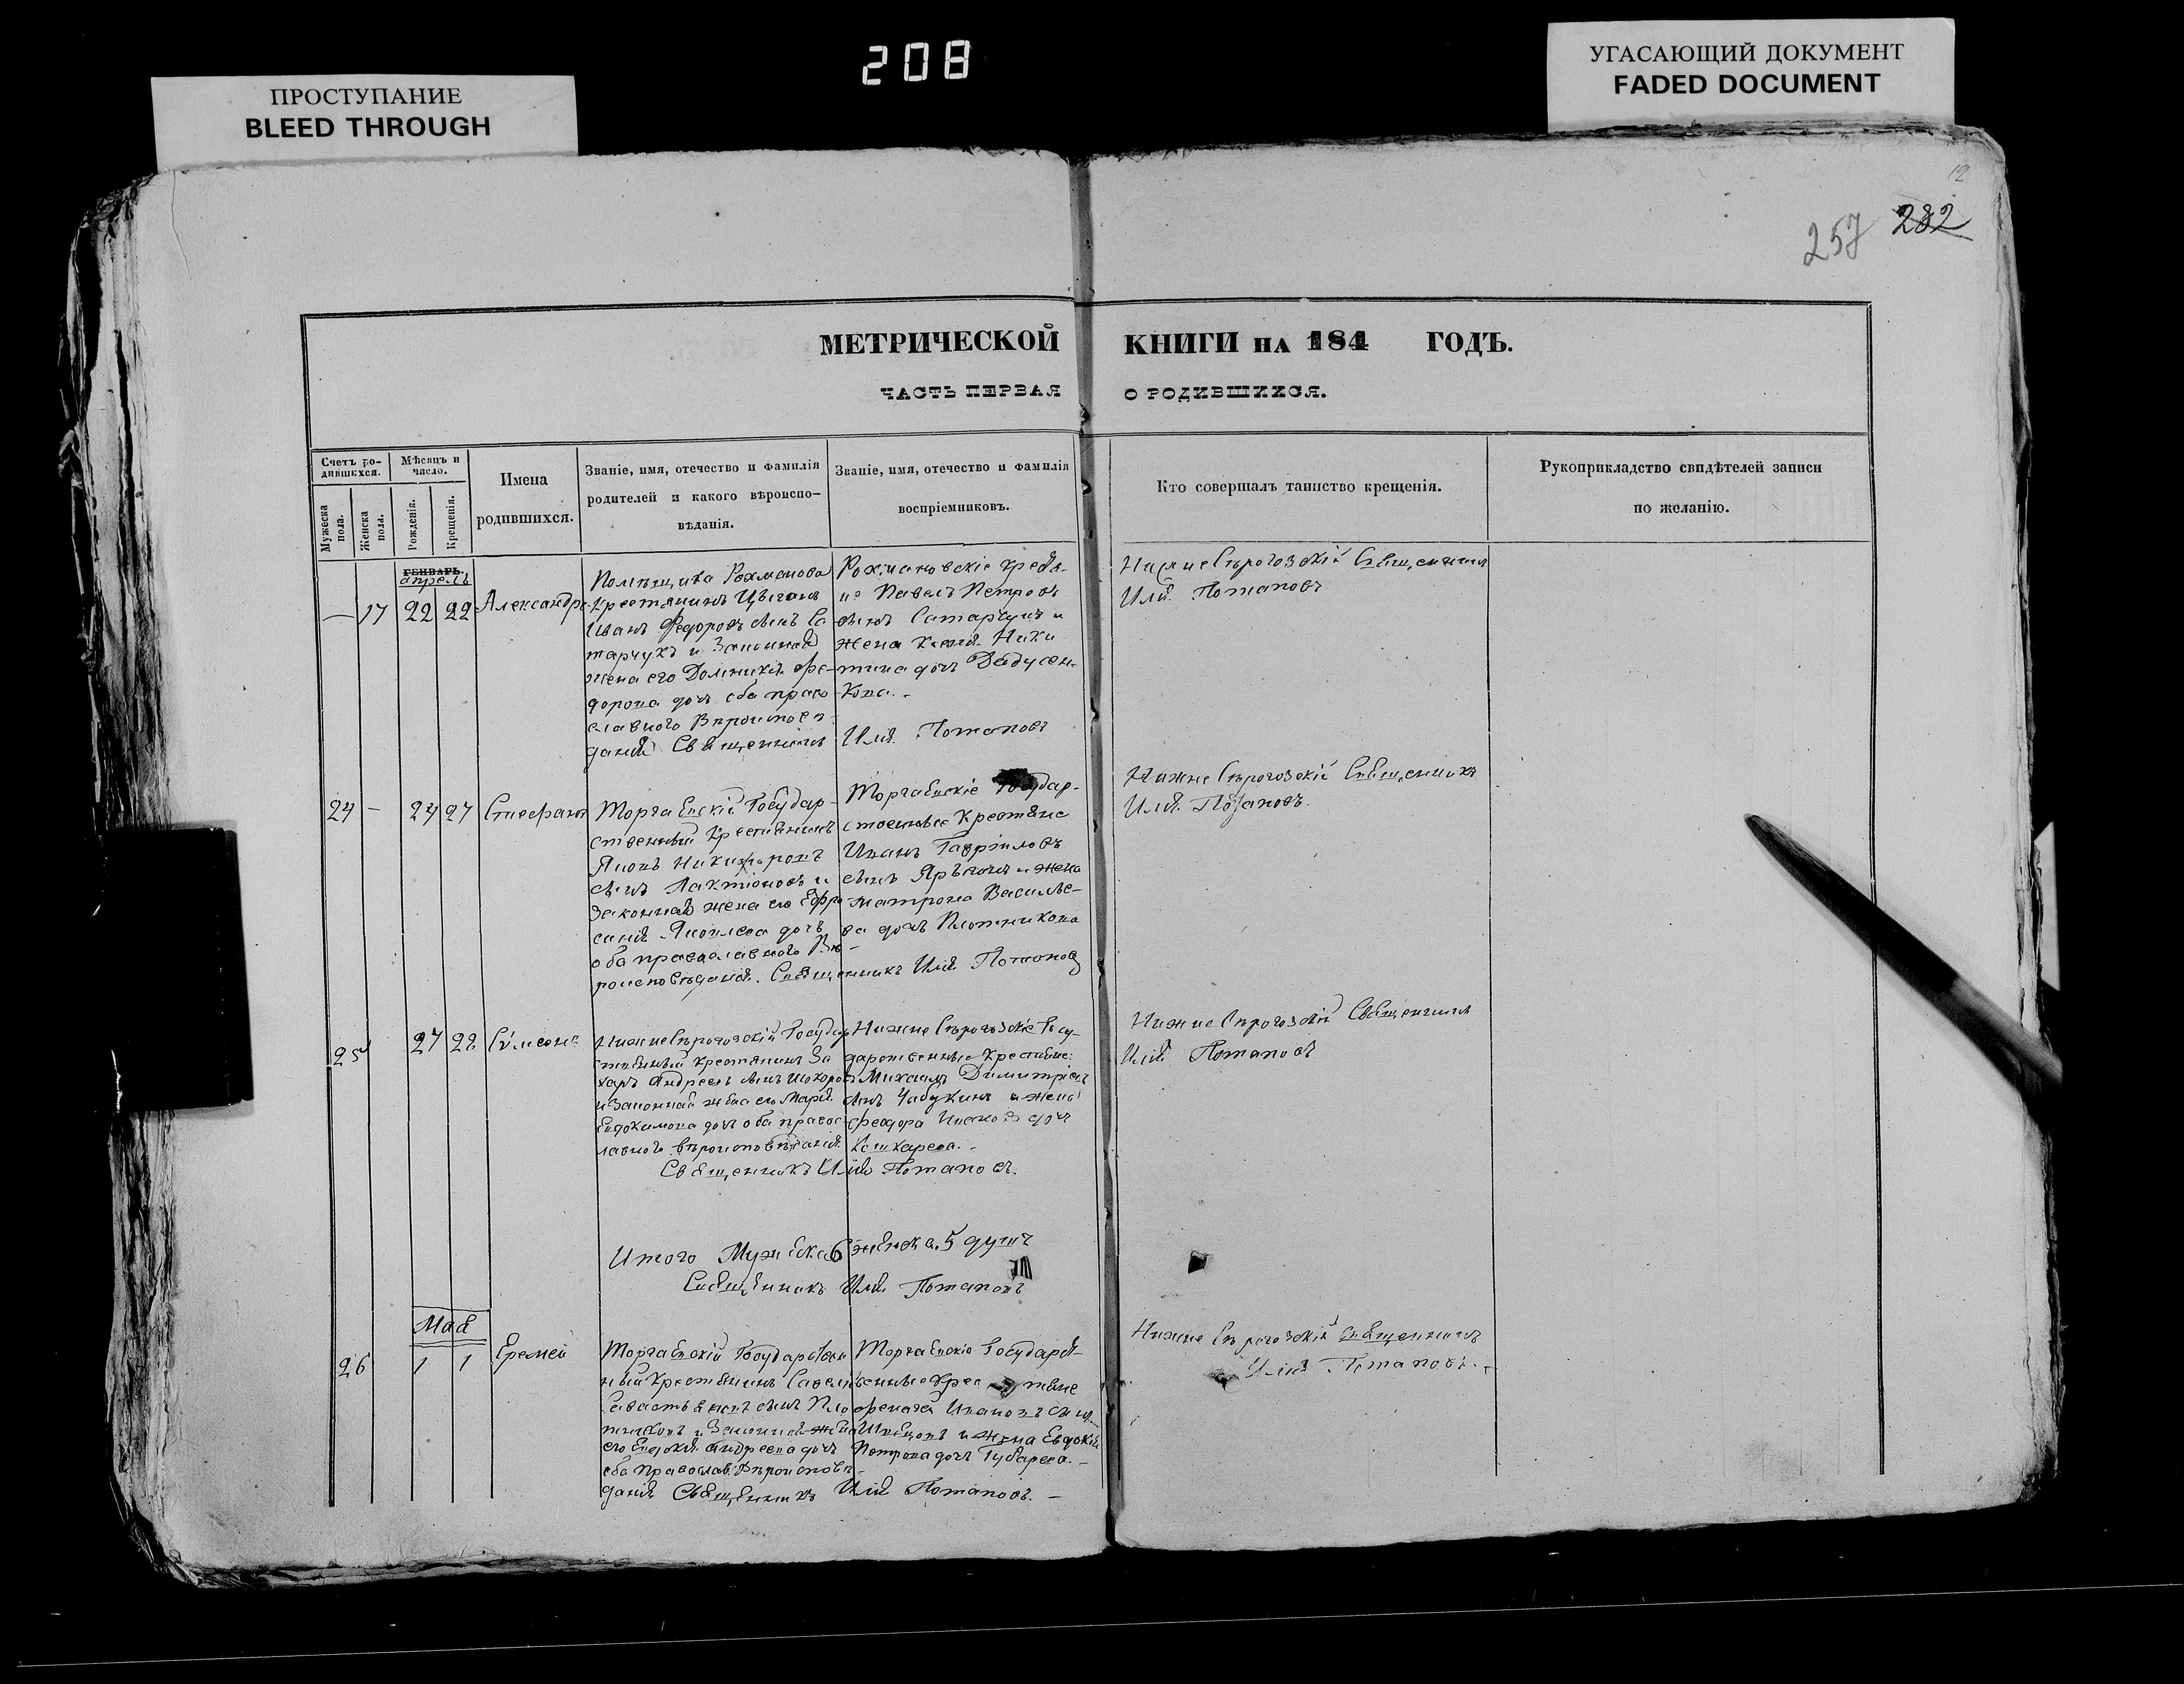 208
ПРОСТУПАНИЕ
BLEED THROUGH
УГАСАЮЩИЙ ДОКУМЕНТ
FADED DOCUMENT
12
257 282
МЕТРИЧЕСКОЙ КНИГИ НА 184 ГОДЪ.
ЧАСТЬ ПЕРВАЯ О РОДИВШИХСЯ.
Счетъ ро-
дившихся.
Мужеска
пола.
Женска
пола.
Мѣсяцъ и
число.
Рожденія.
Крещенія.
Имена
родившихся.
Званіе, имя, отечество и фамилія
родителей и какого вѣроиспо-
вѣданія.
Званіе, имя, отечество и фамилія
воспріемниковъ.
Кто совершалъ таинство крещенія.
Рукоприкладство свидѣтелей записи
по желанію.
ГЕНВАРЬ.
апрель
— 17 22 22 Александра
Помѣщика Рохманова
крестянинъ Цыганъ
Иванъ Федоровъ сынъ Са
тарчукъ и Законная
жена его Домникія Фе-
дорова дочь оба право
славного Вѣроисповѣ-
данія Священникъ
Рохмановскіе крестя-
не Павелъ Петровъ
сынъ Сатарчукъ и
жена Ники
тина дочь
кова.-
Илія Потаповъ
НижнеСѣрогозскій Священникъ
Илія Потаповъ
24 — 24 27 Стефанъ
Торгаевскій Государ-
ственный Крестянинъ
Яковъ Никифоровъ
сынъ Лактіоновъ и
Законная жена его Ефро
синія Яковлева дочь
оба православного Вѣ-
роисповѣданія. Священникъ Илія Потаповъ
Торгаевскіе Государ-
ственные Крестяне
Иванъ Гавриловъ
сынъ и жена
Матрона Василье-
ва дочь Плотникова
НижнеСѣрогозскій Священникъ
Илія Потаповъ.
25 27 28 Сѵмеонъ
НижнеСѣрогозскій Государ
ственный крестянинъ За
харъ Андреевъ сынъ
и Законная жена его Марія
Евдокимова дочь оба правос
лавного вѣроисповѣданія.
Священникъ Илія Потаповъ.
НижнеСѣрогозскіе Госу-
дарственные Крестяне:
Михаилъ Димитріевъ
сынъ Чабукинъ и жена
Феодора дочь
Кошкарева.-
НижнеСѣрогозскій Священникъ
Илія Потаповъ
Итого Мужеска 6 женска. 5 душъ
Священникъ Илія Потаповъ
Мая
26 1 1 Еремей
Торгаевскій Государствен
ный Крестянинъ Савелій
Севастьяновъ сынъ Пло
тниковъ и Законная жена
его Евдокія Андреева дочь
оба Православ. Вѣроисповѣ-
данія Священникъ Илія Потаповъ. —
Торгаевскіе Государст-
венные Крестяне
Ивановъ сынъ
Швецовъ и жена Евдокія
Петрова дочь Губарева.-
НижнеСѣрогозскій Священникъ
Илія Потаповъ.-